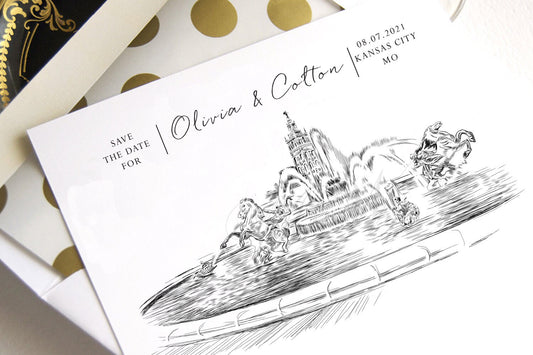 SAVE
THE DATE
FOR
Olivia & Colton
08.07.2021
KANSAS CITY
MO